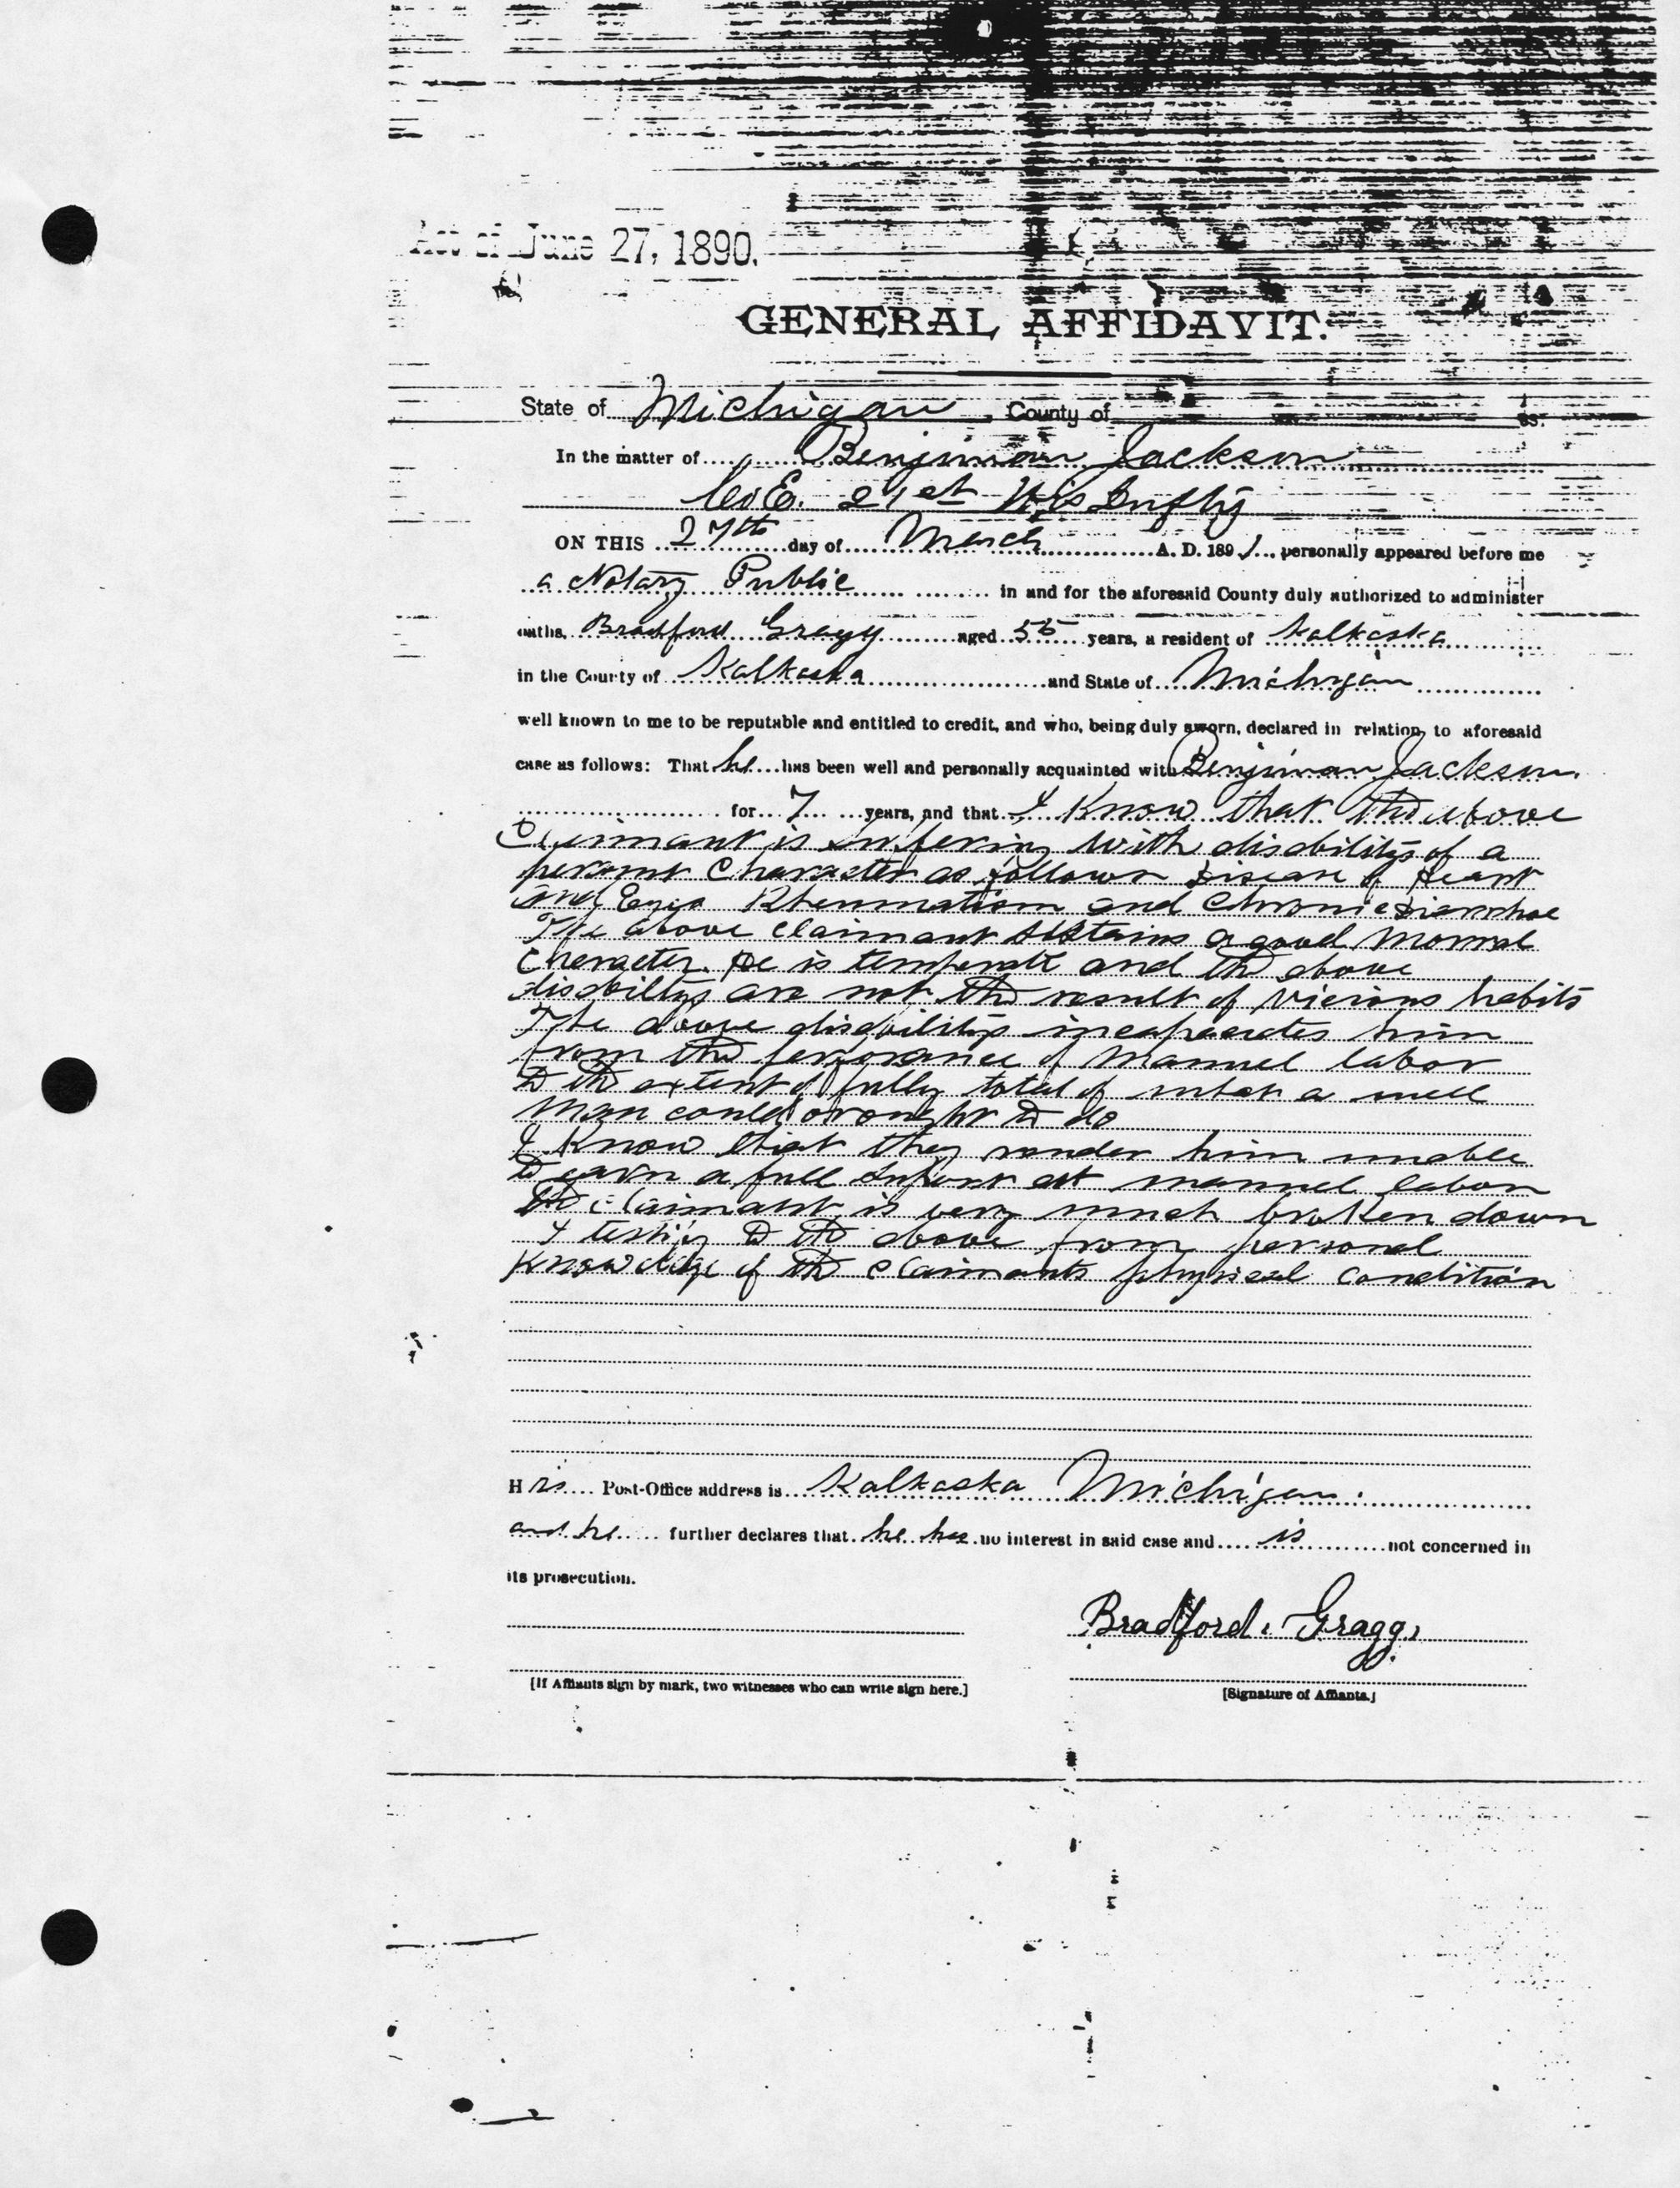 Act of June 27, 1890.
GENERAL AFFIDAVIT.
State of Michigan, County of ss.
In the matter of Benjiman Jackson
Co E. 21st Wis Infty
ON THIS 27th day of March A. D. 1891, personally appeared before me
a Notary Public in and for the aforesaid County duly authorized to administer
oaths, Bradford Gragg aged 55 years, a resident of Kalkaska
in the County of Kalkaska and State of Michigan
well known to me to be reputable and entitled to credit, and who, being duly sworn, declared in relation to aforesaid
case as follows: That he has been well and personally acquainted with Benjiman Jackson.
for 7 years, and that I Know that the above
Claimant is suffering with disability of a
Character as follows Disease of Heart
and Eyes Rhenmatism and Chronic Diarrhoe
The above claimant sustains a good Morral
Character. He is temperate and the above
disabiltys are not the result of vicious habits
The above disabilitys incapacites him
from the perforance of Manuel labor
to the extent of fully total of what a well
Man could or ought to do
I Know that they render him unable
to earn a full Suport at manuel labor
the Claimant is very much broken down
I testify to the above from personal
Knowledge of the Claimants physical Condition
His Post-Office address is Kalkaska Michigan.
and he further declares that he has no interest in said case and is not concerned in
its prosecution.
Bradford. Gragg.
[If Affiants sign by mark, two witnesses who can write sign here.]
[Signature of Affiants.]